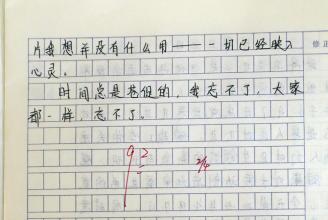 片我想并没有什么用——一切已经映入
心灵。
时间总是苍促的，我忘不了，大家
都一样，忘不了。
92
2/4
修正